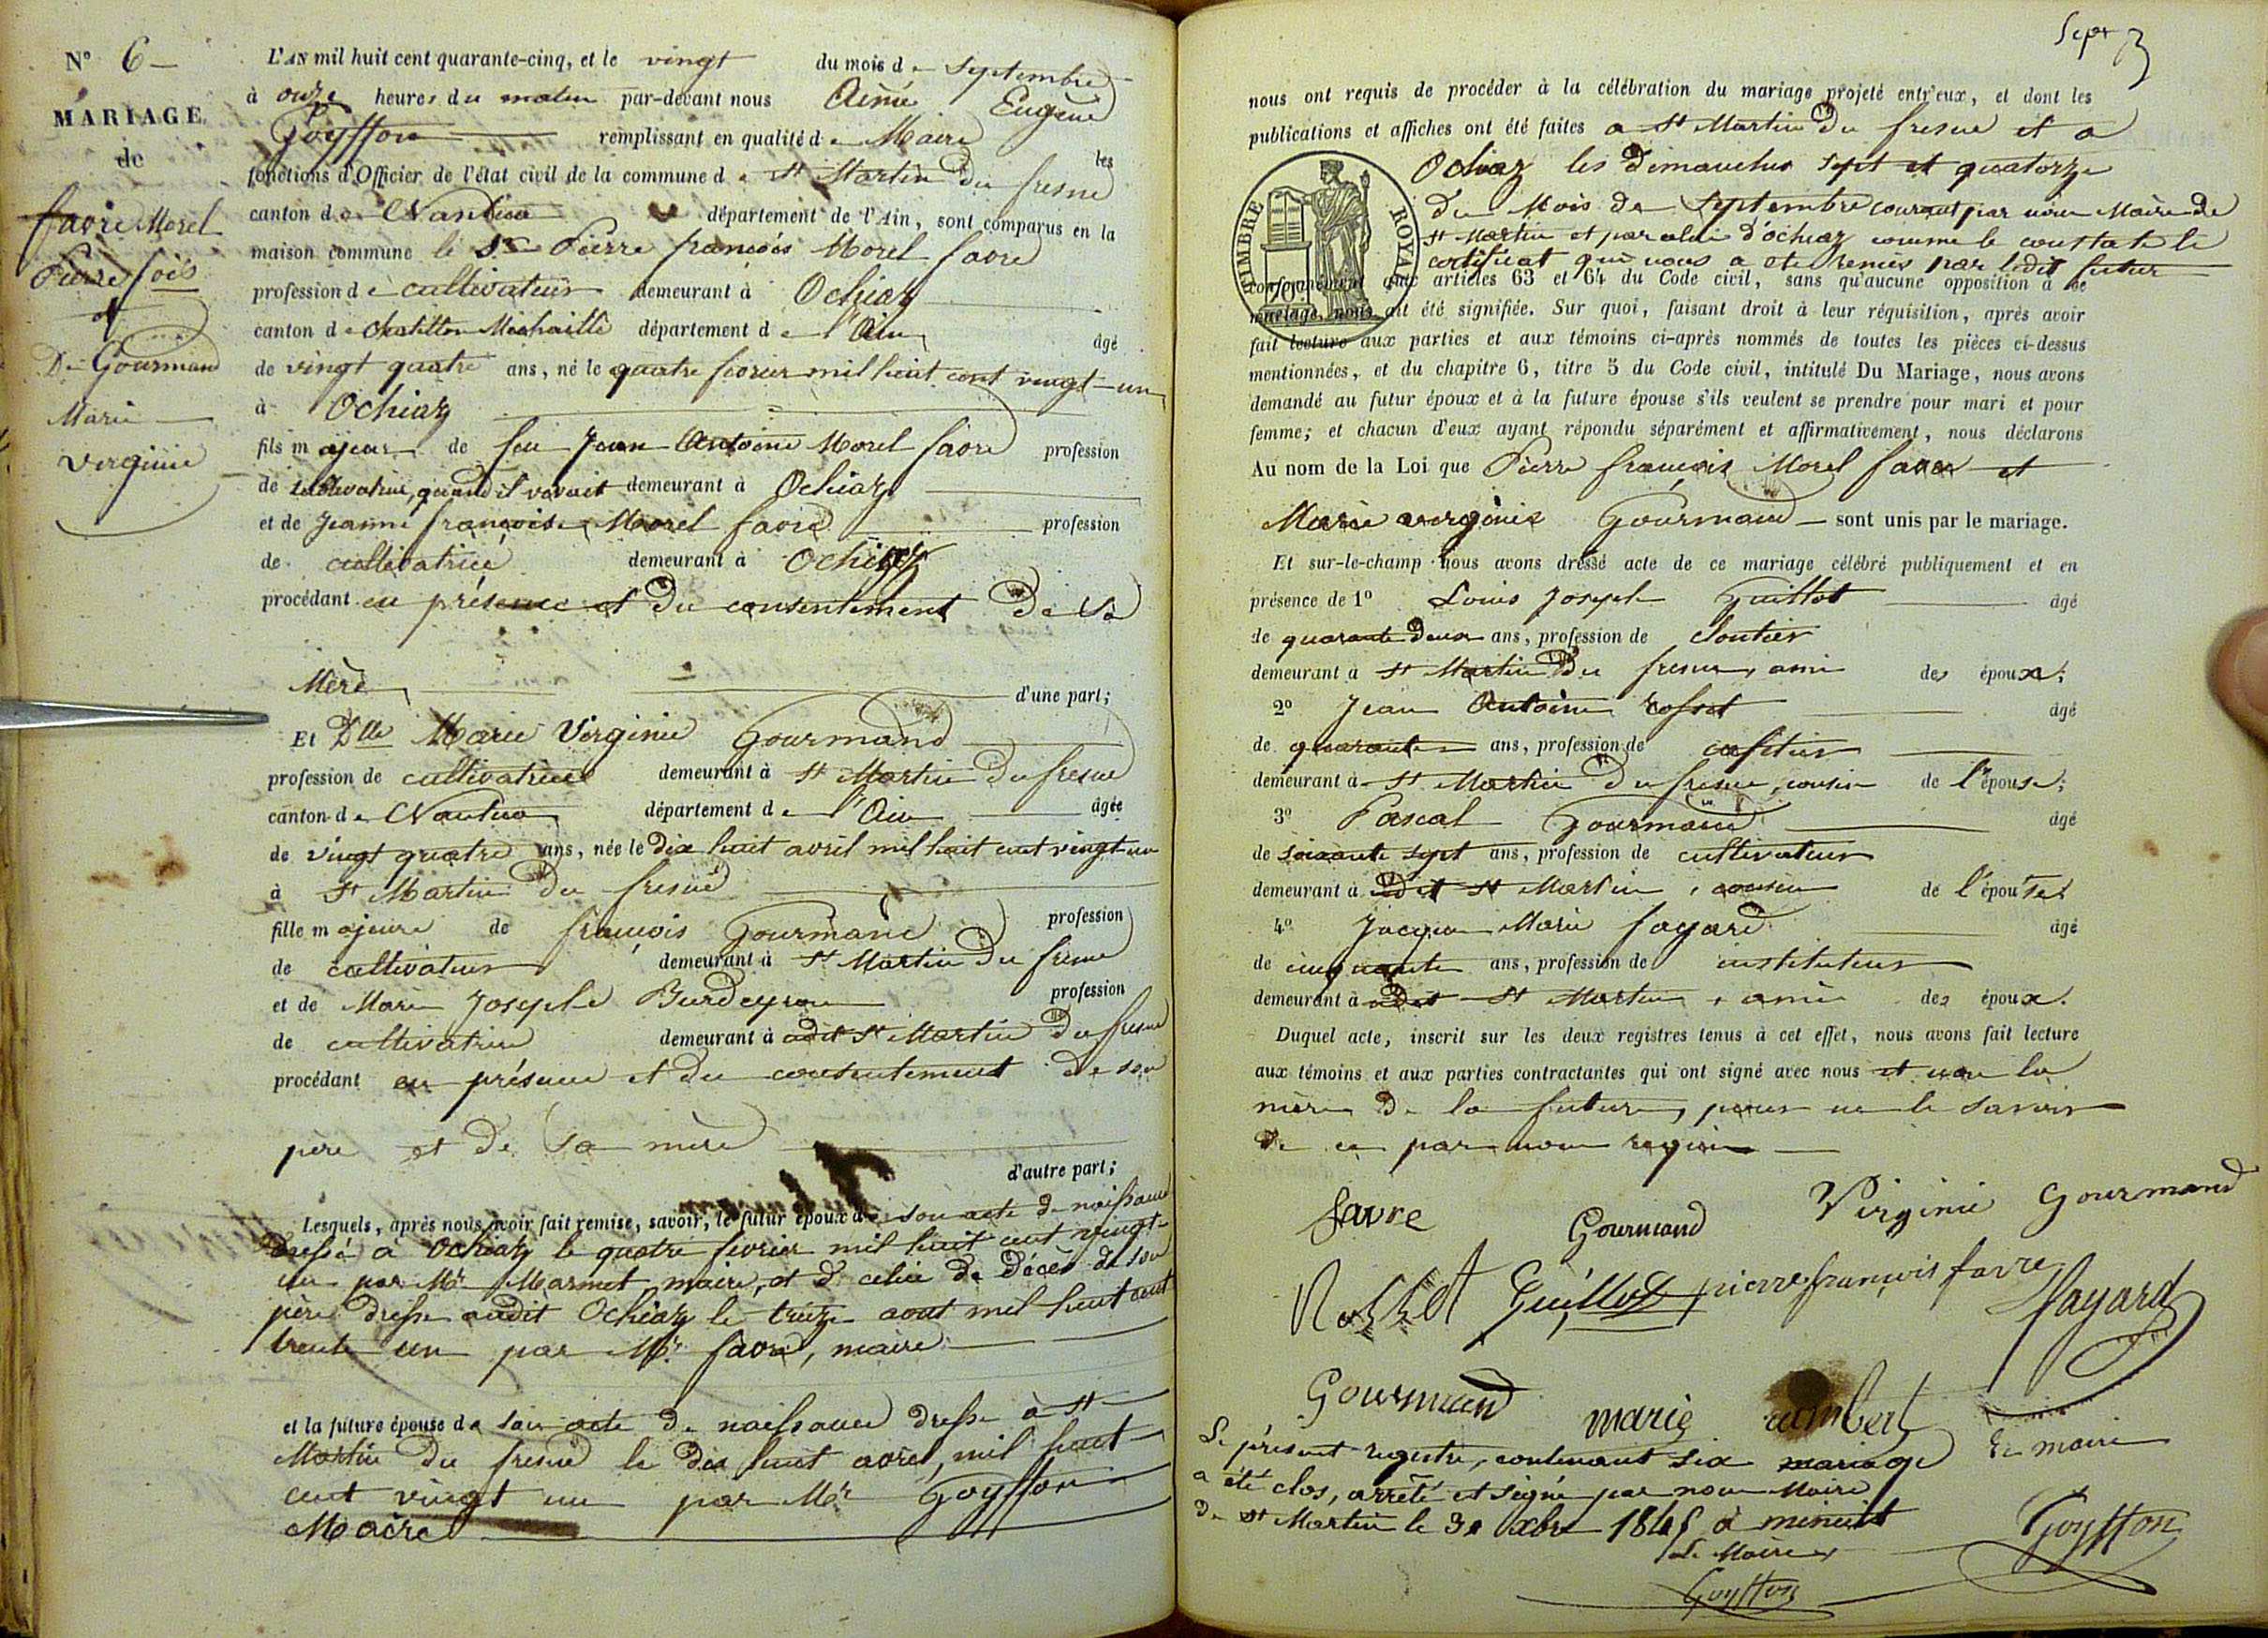 N° 6 —
MARIAGE
de
favre Morel
Pierre fois
et
Dlle Gourmand
Marie
Virginie
L'AN mil huit cent quarante-cinq, et le vingt du mois de septembre
à onze heures du matin par-devant nous Aimé Eugène
Goyffon remplissant en qualité de Maire les
fonctions d'Officier de l'état civil de la commune de St Martin du fresne
canton de Nantua département de l'Ain, sont comparus en la
maison commune le Sr Pierre françois Morel favre
profession de cultivateur demeurant à Ochiaz
canton de Chatillon Michaille département de l'Ain âgé
de vingt quatre ans, né le quatre fevrier mil huit cent vingt-un
à Ochiaz
fils majeur de feu Jean Antoine Morel favre profession
de cultivateur, quand il vivait demeurant à Ochiaz
et de Jeanne françoise Morel favre profession
de cultivatrice demeurant à Ochiaz
procédant en présence et du consentement De Sa
Mère d'une part;
Et Dlle Marie Virginie Gourmand
profession de cultivatrice demeurant à St Martin Du fresne
canton de Nantua département de l'Ain âgée
de vingt quatre ans, née le dix huit avril mil huit cent vingt-un
à St Martin Du fresne
fille majeure de françois Gourmand profession
de cultivateur demeurant à St Martin Du fresne
et de Marie Josephe Burdeyron profession
de cultivatrice demeurant à audit St Martin Du fresne
procédant en présence et du consentement de son
père et De Sa mère
d'autre part;
Lesquels, après nous avoir fait remise, savoir, le futur époux de son acte de naissance
dressé à Ochiaz le quatre fevrier mil huit cent vingt-
un par Mr Marmet, maire, et d celui De Décès de son
père dressé audit Ochiaz le treize aout mil huit cent
trente un par Mr favre, maire
et la future épouse de son acte De naissance dressé à St
Martin Du fresne le dix huit avril, mil huit
cent vingt un par Mr Goyffon
Maire
Sept 3
nous ont requis de procéder à la célébration du mariage projeté entr'eux, et dont les
publications et affiches ont été faites a St Martin Du fresne et a
Ochiaz les Dimanches sept et quatorze
Du Mois De Septembre courant par nous Maire de
St Martin et par celui d'ochiaz comme le constate le
certificat qui nous a été remis par ledit futur
TIMBRE ROYAL
conformément aux articles 63 et 64 du Code civil, sans qu'aucune opposition à ce
mariage nous ait été signifiée. Sur quoi, faisant droit à leur réquisition, après avoir
fait lecture aux parties et aux témoins ci-après nommés de toutes les pièces ci-dessus
mentionnées, et du chapitre 6, titre 5 du Code civil, intitulé Du Mariage, nous avons
demandé au futur époux et à la future épouse s'ils veulent se prendre pour mari et pour
femme; et chacun d'eux ayant répondu séparément et affirmativement, nous déclarons
Au nom de la Loi que Pierre françois Morel favre et
Marie virginie Gourmand — sont unis par le mariage.
Et sur-le-champ nous avons dressé acte de ce mariage célébré publiquement et en
présence de 1° Louis Joseph Guillot âgé
de quarante Deux ans, profession de
demeurant à St Martin Du fresne, ami des époux;
2° Jean Antoine rosset âgé
de quarante ans, profession de cafetier
demeurant à St Martin Du fresne, cousin de l'épouse;
3° Pascal Gourmand âgé
de soixante sept ans, profession de cultivateur
demeurant à audit St Martin, cousin de l'épouse;
4° Jacques Marie fayard âgé
de cinquante ans, profession de instituteur
demeurant à audit St Martin, ami des époux.
Duquel acte, inscrit sur les deux registres tenus à cet effet, nous avons fait lecture
aux témoins et aux parties contractantes qui ont signé avec nous et non la
mère De la future, pour ne le savoir
De ce par nous requise
favre Gourmand Virginie Gourmand
Rosset Guillot pierre françois favre fayard
Gourmand marie
Le maire
Le présent registre, contenant six mariage
a été clos, arrêté et signé par nous Maire
De St Martin le 31 Xbre 1845 à minuit
Le Maire
Goyffon
Goyffon